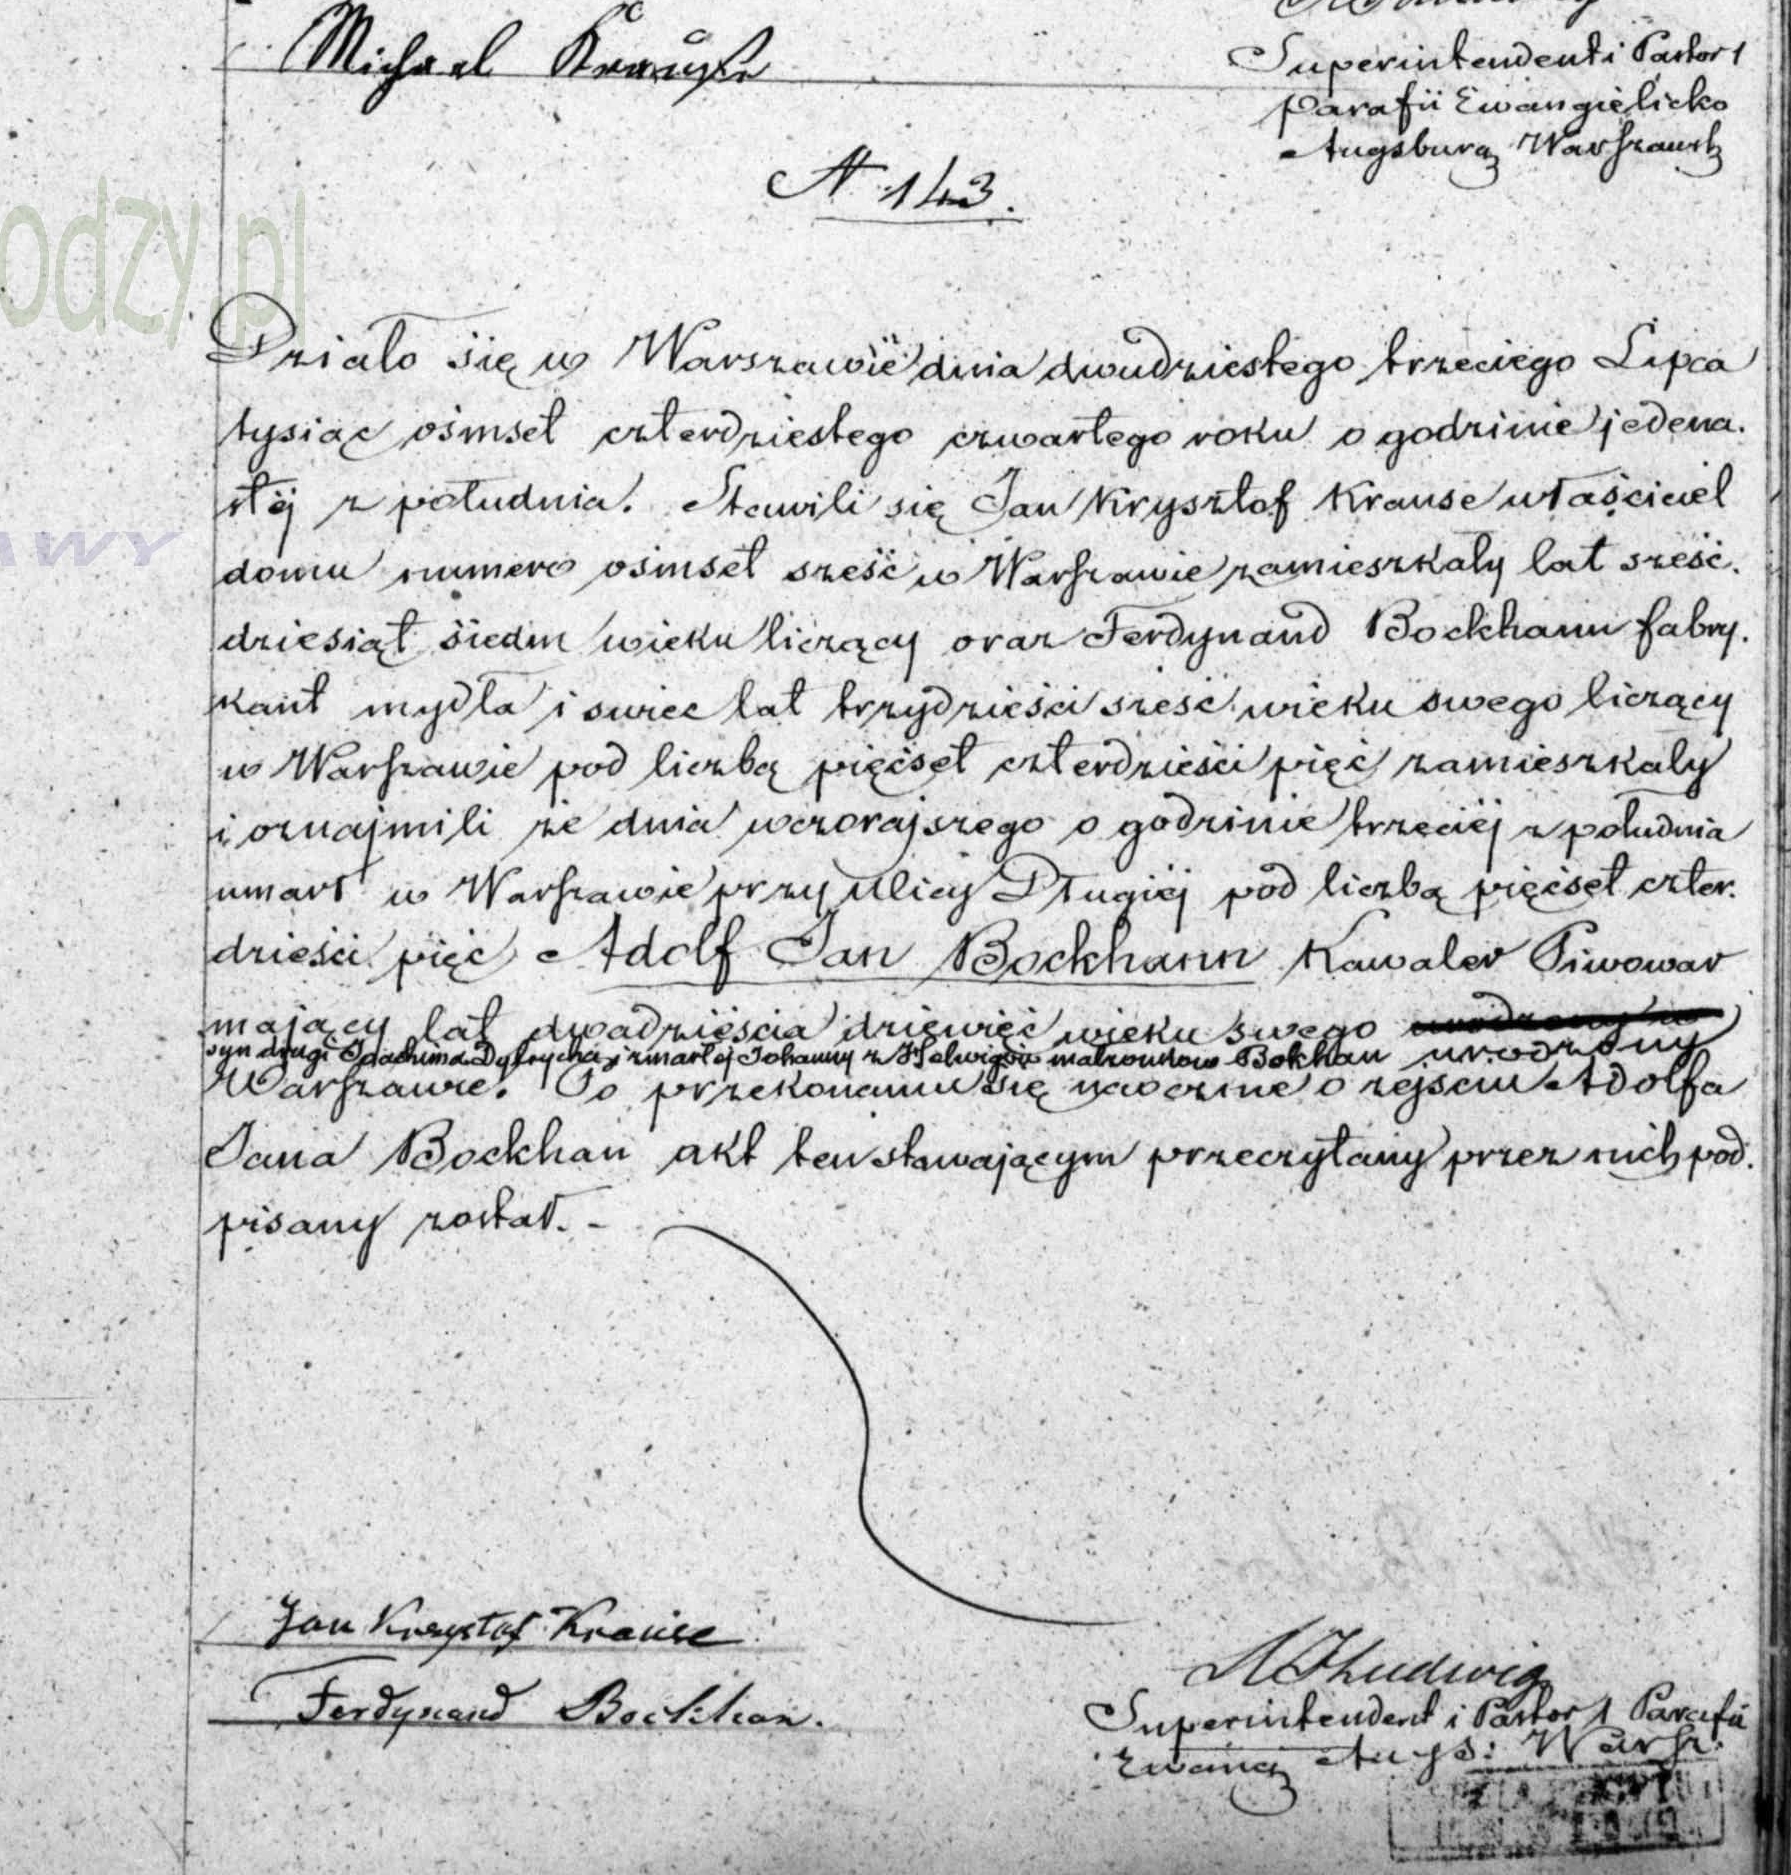 Michael Krause
Superintendent i Pastor 1
Parafii Ewangielicko
Augsburg Warszawsk
N 143.
odzy.pl
Działo się w Warszawie dnia dwudziestego trzeciego Lipca
tysiąc ośmset czterdziestego czwartego roku o godzinie jedena.
stej z południa. Stawili się Jan Krysztof Krause właściciel
domu numero ośmset sześć w Warszawie zamieszkały lat sześć.
dziesiąt siedm wieku liczący oraz Ferdynand Bockhann fabry.
kant mydła i swiec lat trzydzieści sześć wieku swego liczący
w Warszawie pod liczbą pięćset czterdzieści pięć zamieszkały
i oznajmili że dnia wczorajszego o godzinie trzeciej z południa
umarł w Warszawie przy ulicy Długiej pod liczbą pięćset czter.
dzieści pięć Adolf Jan Bockhann Kawaler Piwowar
mający lat dwadzieścia dziewięć wieku swego urodzony w
syn drugi Joachima Dytrycha i zmarłej Johanny z Helwigów małzonków Bokhan urodzony
Warszawie. Po przekonaniu się naocznie o zejściu Adolfa
Jana Bockhan akt ten stawającym przeczytany przez nich pod.
pisany został. -
AWY
Jan Krzysztof Krause
Ferdynand Bockhan.
Ludwig
Superintendent i Pastor 1 Parafii
Ewang Augs: Warsz.